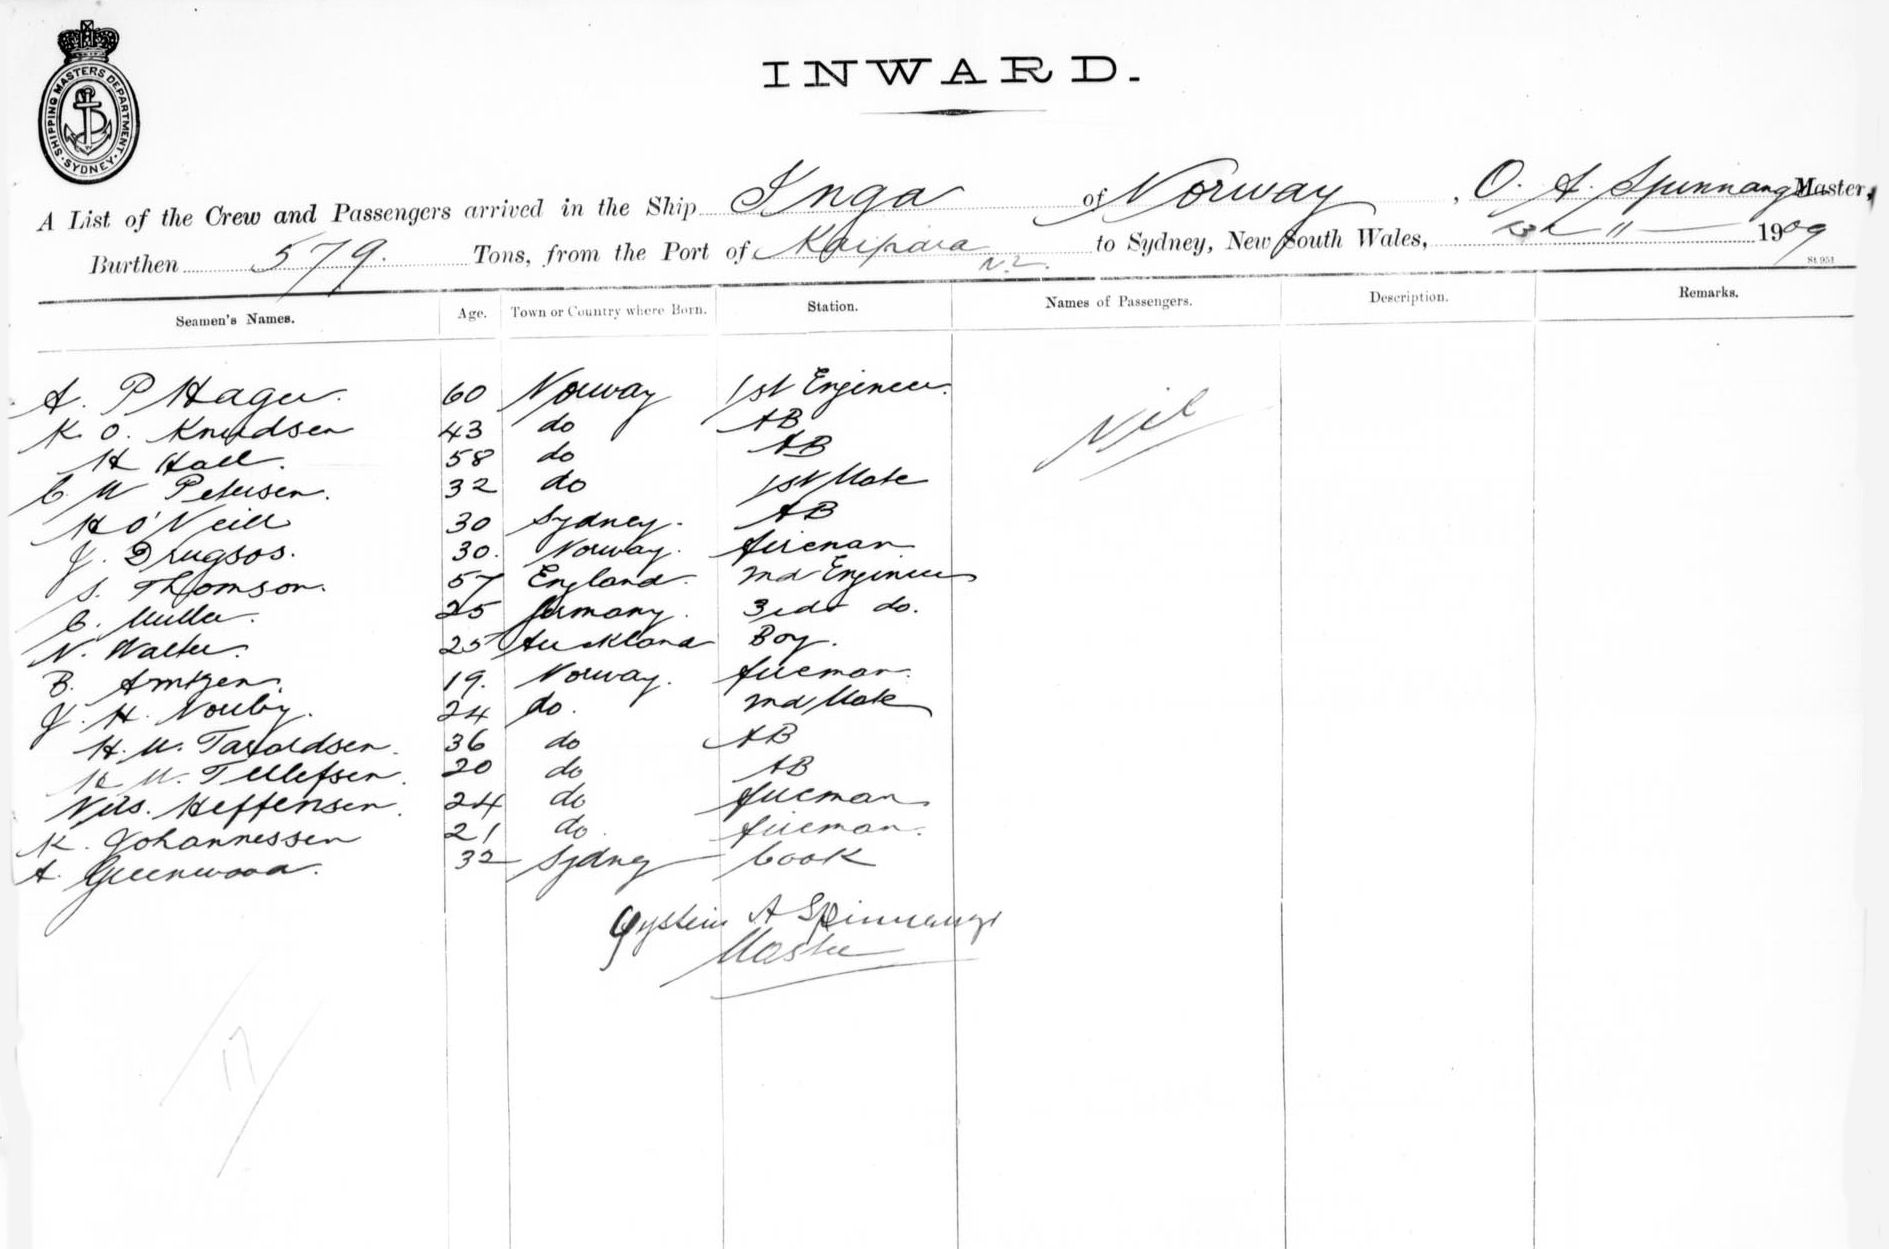 SHIPPING MASTERS DEPARTMENT
SYDNEY
INWARD.
A List of the Crew and Passengers arrived in the Ship Inga of Norway, O. A. Spinnangr Master,
Burthen 579. Tons, from the Port of Kaipara N.Z. to Sydney, New South Wales, 11 1909
St 951
Seamen's Names. Age. Town or Country where Born. Station. Names of Passengers. Description. Remarks.
A. P Hager. 60 Norway 1st Engineer. Nil
K. O. Knudsen 43 do AB
H Hall. 58 do AB
C. M Petersen. 32 do 1st Mate
H O'Neill 30 Sydney. AB
J. Drugsos. 30. Norway. fireman.
S. Thomson. 57 England. 2nd Engineer
C. Muller. 25 Germany. 3rd do.
N. Walter. 25 Auckland Boy.
B. Arntzen. 19. Norway. fireman.
J. H. Nouby. 24 do. 2nd Mate
H. M. Taraldsen. 36 do AB
M. Tellefsen. 20 do AB
Nils. Heffensen. 24 do fireman
K. Johannessen 21 do. fireman.
A. Greenwood. 32 Sydney Cook
Oystein A Spinnangr
Master
17